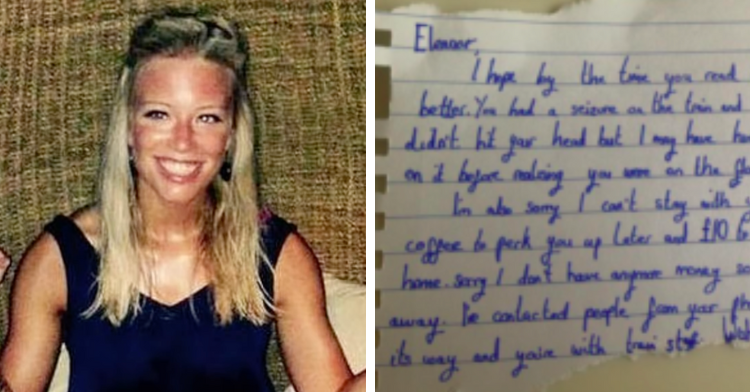 Eleanor,
I hope by the time you read
better. You had a seizure on the train and
didn't hit your head but I may have
on it before realising you were on the
I'm also sorry I can't stay with
coffee to perk you up later and £10
home. Sorry I don't have anymore money
away. I've contacted people from your
its way and you're with train